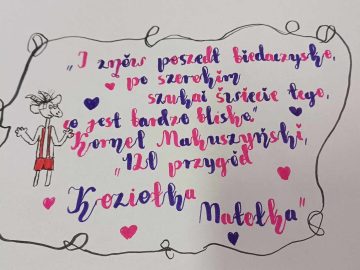 „I znów poszedł biedaczysko,
po szerokim
szukai świecie tego,
co jest bardzo blisko."
Kornel Makuszyński,
"120 przygód
Koziołka
Matołka"